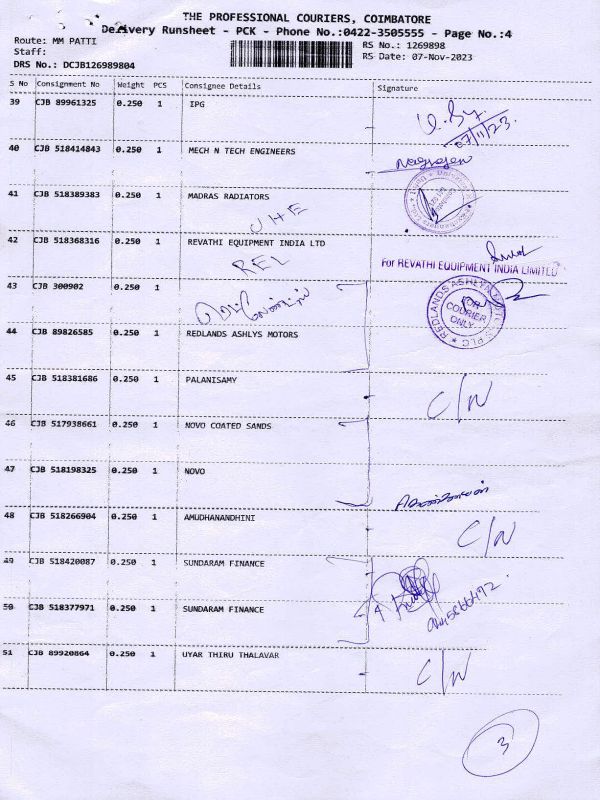 THE PROFESSIONAL COURIERS, COIMBATORE
Delivery Runsheet - PCK - Phone No.:0422-3505555 - Page No.:4
Route: MM PATTI RS No.: 1269898
Staff: RS Date: 07-Nov-2023
DRS No.: DCJB126989804
S No Consignment No Weight PCS Consignee Details Signature
39 CJB 89961325 0.250 1 IPG
07/11/23
40 CJB 518414843 0.250 1 MECH N TECH ENGINEERS
41 CJB 518389383 0.250 1 MADRAS RADIATORS
UHE
42 CJB 518368316 0.250 1 REVATHI EQUIPMENT INDIA LTD
REL For REVATHI EQUIPMENT INDIA LIMITED
43 CJB 300902 0.250 1
REDLANDS ASHLYN PLC
FOR COURIER ONLY
44 CJB 89826585 0.250 1 REDLANDS ASHLYS MOTORS
45 CJB 518381686 0.250 1 PALANISAMY
C/N
46 CJB 517938661 0.250 1 NOVO COATED SANDS
47 CJB 518198325 0.250 1 NOVO
48 CJB 518266904 0.250 1 AMUDHANANDHINI
C/N
49 CJB 518420087 0.250 1 SUNDARAM FINANCE
50 CJB 518377971 0.250 1 SUNDARAM FINANCE
51 CJB 89920864 0.250 1 UYAR THIRU THALAVAR
C/N
3